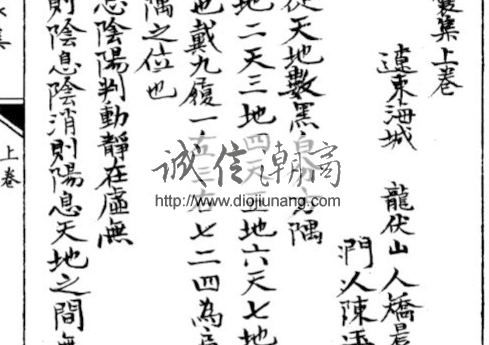 集上卷
遼東海城 龍伏山人矯
門人陳
從天地數黑白 隅
地二天三地四天五地六天七地
也戴九履一左三右七二四為
隅之位也
息陰陽判動靜在虛無
則陰息陰消則陽息天地之間無
集
上卷
诚信潮
http://www.diojiunang.com